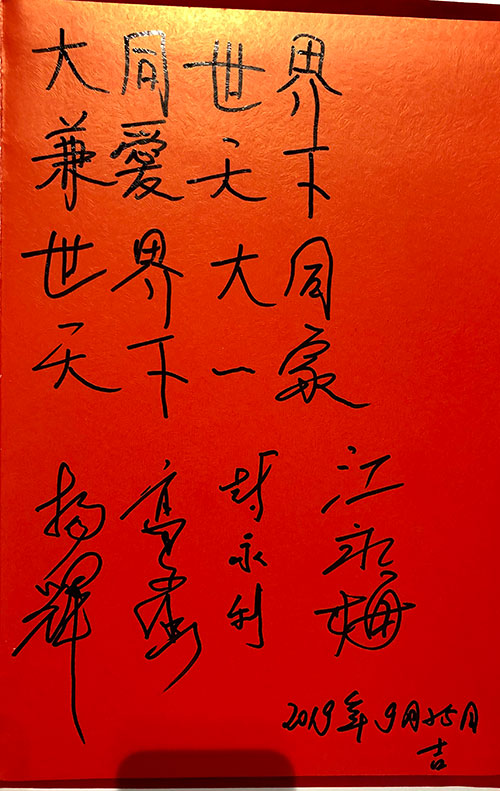 大同世界
兼愛天下
世界大同
天下一家
楊輝 高 封永利 江永梅
2019年9月25日
吉